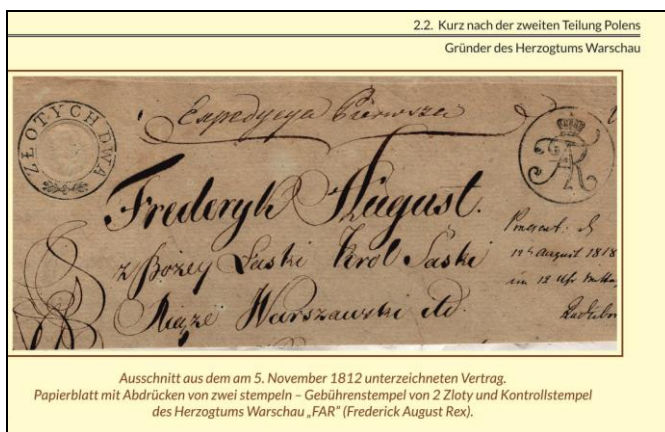 2.2. Kurz nach der zweiten Teilung Polens
Gründer des Herzogtums Warschau
ZŁOTYCH DWA
Expedycya Pierwsza
FAR
Fryderyk August.
z Bożey Łaski Krol Saski
Xiąże Warszawski itd.
12 August 1818
im 12 Uhr
Ausschnitt aus dem am 5. November 1812 unterzeichneten Vertrag.
Papierblatt mit Abdrücken von zwei stempeln – Gebührenstempel von 2 Zloty und Kontrollstempel
des Herzogtums Warschau „FAR" (Frederick August Rex).